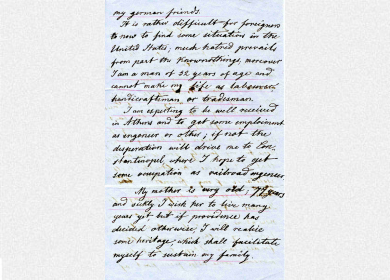 my german friends.
It is rather difficult for foreigners
to now to find some situation in the
United States; much hatred prevails
from part the Knownothings, moreover
I am a man of 52 years of age and
cannot make my life as labourer
handicraftman or tradesman.
I am expecting to be well received
in Athens and to get some employment
as engeneer or other; if not the
desperation will drive me to Con-
stantinopel, where I hope to get
some occupation as railroad engeneer
My mother is very old, 77 years
and sickly I wish her to live many
years yet but if providence has
decided otherwise, I will realise
some heritage, which shall facilitate
myself to sustain my family.